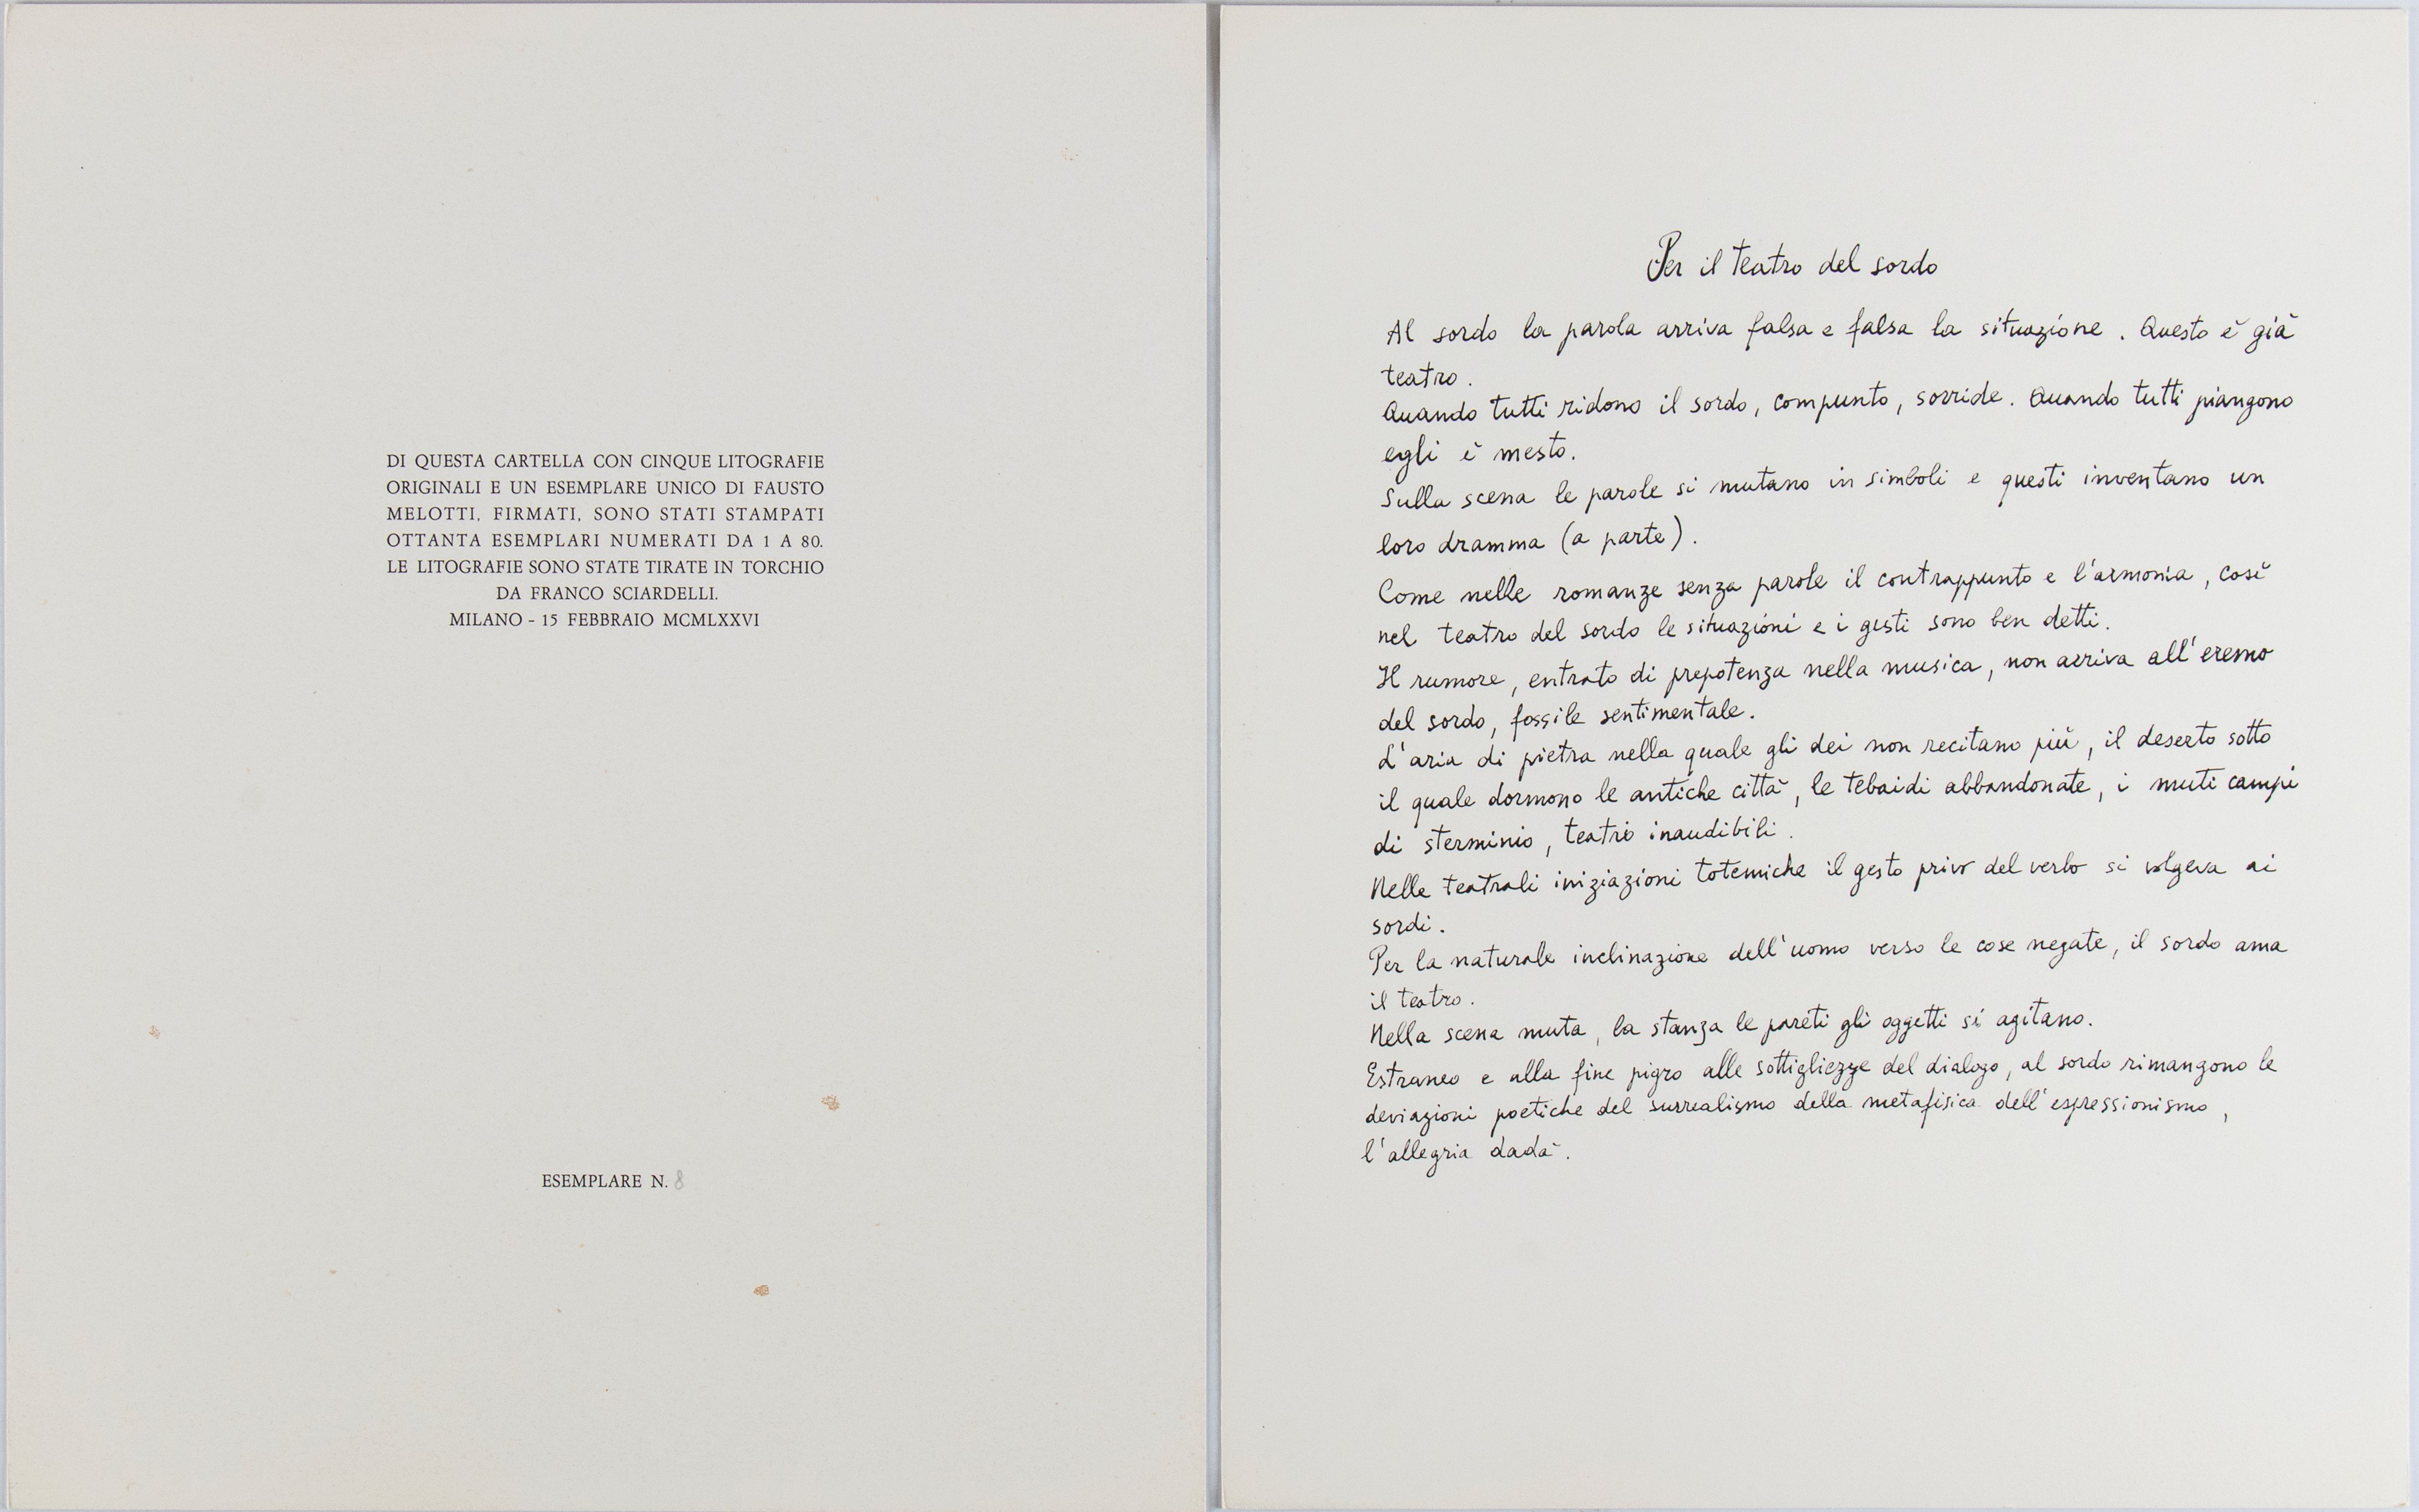 DI QUESTA CARTELLA CON CINQUE LITOGRAFIE
ORIGINALI E UN ESEMPLARE UNICO DI FAUSTO
MELOTTI, FIRMATI, SONO STATI STAMPATI
OTTANTA ESEMPLARI NUMERATI DA 1 A 80.
LE LITOGRAFIE SONO STATE TIRATE IN TORCHIO
DA FRANCO SCIARDELLI.
MILANO - 15 FEBBRAIO MCMLXXVI
ESEMPLARE N. 8
Per il teatro del sordo
Al sordo la parola arriva falsa e falsa la situazione. Questo è già
teatro.
Quando tutti ridono il sordo, compunto, sorride. Quando tutti piangono
egli è mesto.
Sulla scena le parole si mutano in simboli e questi inventano un
loro dramma (a parte).
Come nelle romanze senza parole il contrappunto e l'armonia, così
nel teatro del sordo le situazioni e i gesti sono ben detti.
Il rumore, entrato di prepotenza nella musica, non arriva all'eremo
del sordo, fossile sentimentale.
L'aria di pietra nella quale gli dei non recitano più, il deserto sotto
il quale dormono le antiche città, le tebaidi abbandonate, i muti campi
di sterminio, teatri inaudibili.
Nelle teatrali iniziazioni totemiche il gesto privo del verbo si volgeva ai
sordi.
Per la naturale inclinazione dell'uomo verso le cose negate, il sordo ama
il teatro.
Nella scena muta, la stanza le pareti gli oggetti si agitano.
Estraneo e alla fine pigro alle sottigliezze del dialogo, al sordo rimangono le
deviazioni poetiche del surrealismo della metafisica dell'espressionismo,
l'allegria dadà.